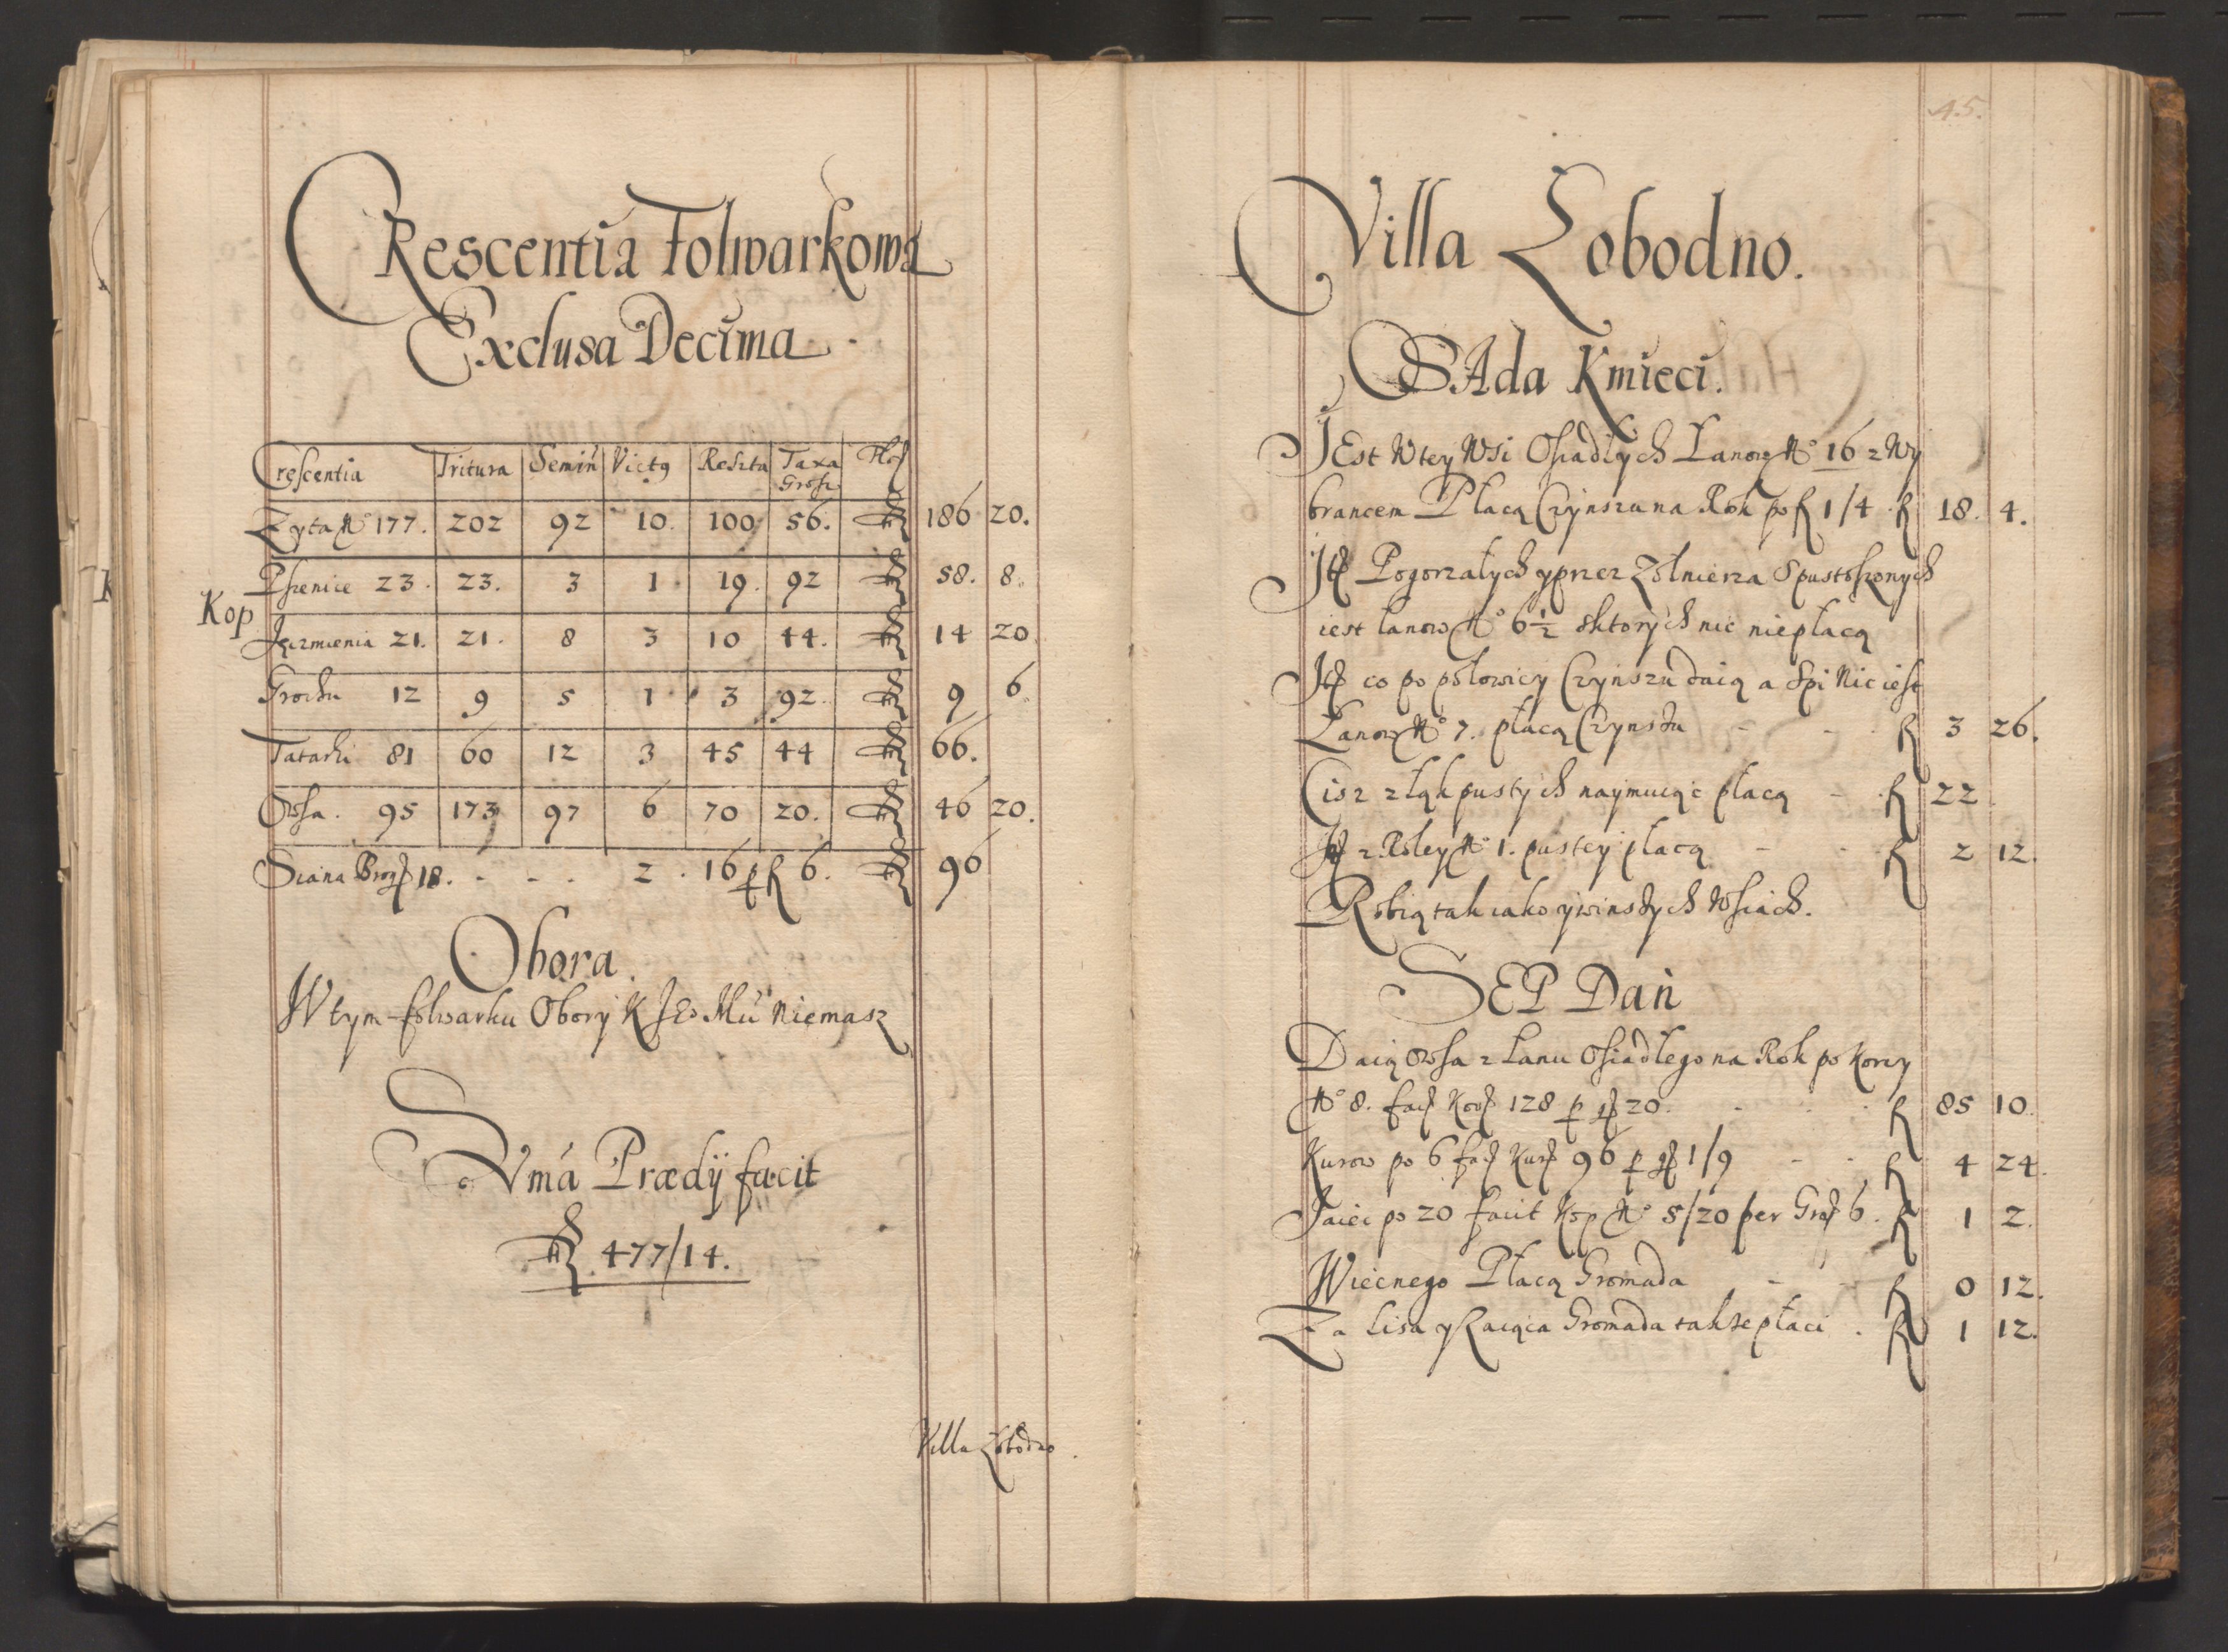 CRescentia Folwarkowa
Exclusa Decima
Crescentia Tritura Semiń Victg Reszta Taxa Grosz
Zyta No 177. 202 92 10. 100 56. 186 20.
Pszenice 23. 23. 3 1 19. 92 58. 8.
Kop
Jęczmienia 21. 21. 8 3 10 44. 14 20
Grochu 12 9 5 1 3 92. 9 6.
Tatarki 81 60 12 3 45 44 66.
Owsa. 95 173 97 6 70 20. 46 20.
Siana 18. - - - 2. 16 p fl 6. 96
Obora.
W tym folwarku Obory K Jeo Mci Niemasz
Suma Prædij facit
fl 477/14.
Villa Łobodno.
45.
Villa Łobodno.
OSAda Kmieci.
JEst W tey Wsi Osiadłych Łanow No 16 z Wy
brancem Płacą Czynszu na Rok po fl 1/4 fl 18. 4.
Jt Pogorzałych y przez Zołnierza Spustoszonych
iest łanow No 6 1/2 z ktorych nic niepłacą
Jt co po połowicy Czynszu daią a Spi Nic iest
Łanow No 7. płacą Czynszu - - fl 3 26.
Ciz z łąk pustych naymuiąc płacą - fl 22
Jt z Roley No 1. pustey płacą - - fl 2 12.
Robią tak iako y w inszych Wsiach.
SEP Dań
Daią Owsa z Łanu Osiadłego na Rok po Korcy
No 8. fac Kor 128 p gr 20. - - fl 85 10.
Kurow po 6 fac Kur 96 p gr 1/9 - - fl 4 24.
Jaiec po 20 facit Kop No 5/20 per Gros 6. fl 1 2.
Wiecnego Płacą Gromada - - fl 0 12.
Za Lisa y Zaiąca Gromada takze płaci. fl 1 12.